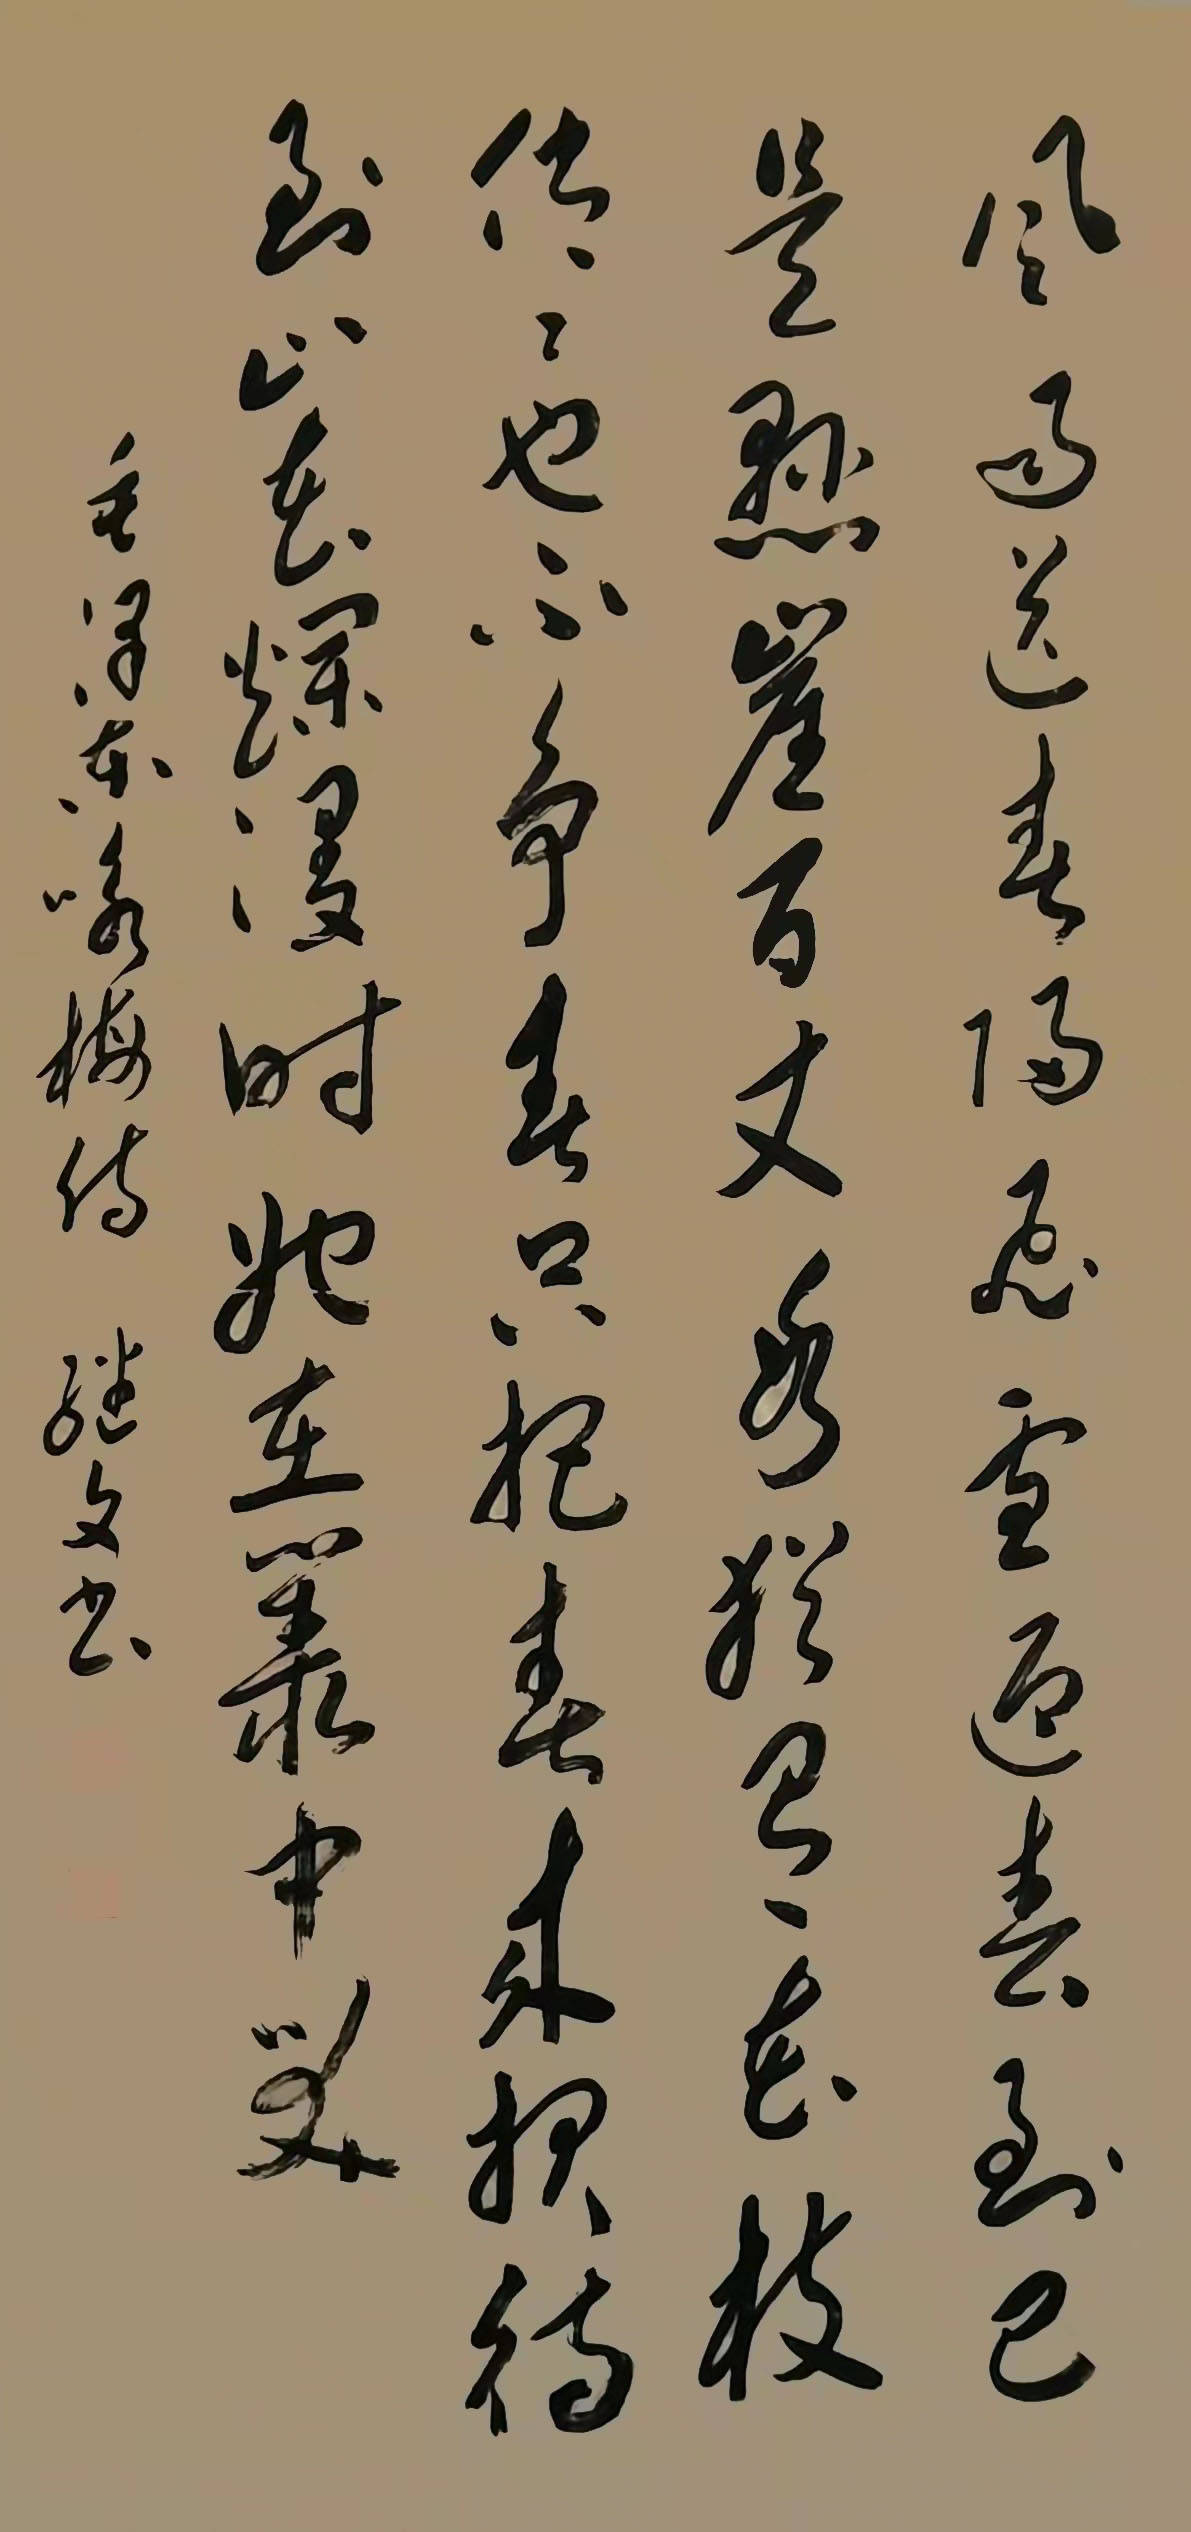 风雨送春归飞雪迎春到已
是懸崖百丈冰猶有花枝
俏〻也不争春只把春来报待
到山花爛漫时她在叢中笑
毛泽东咏梅诗 继文书